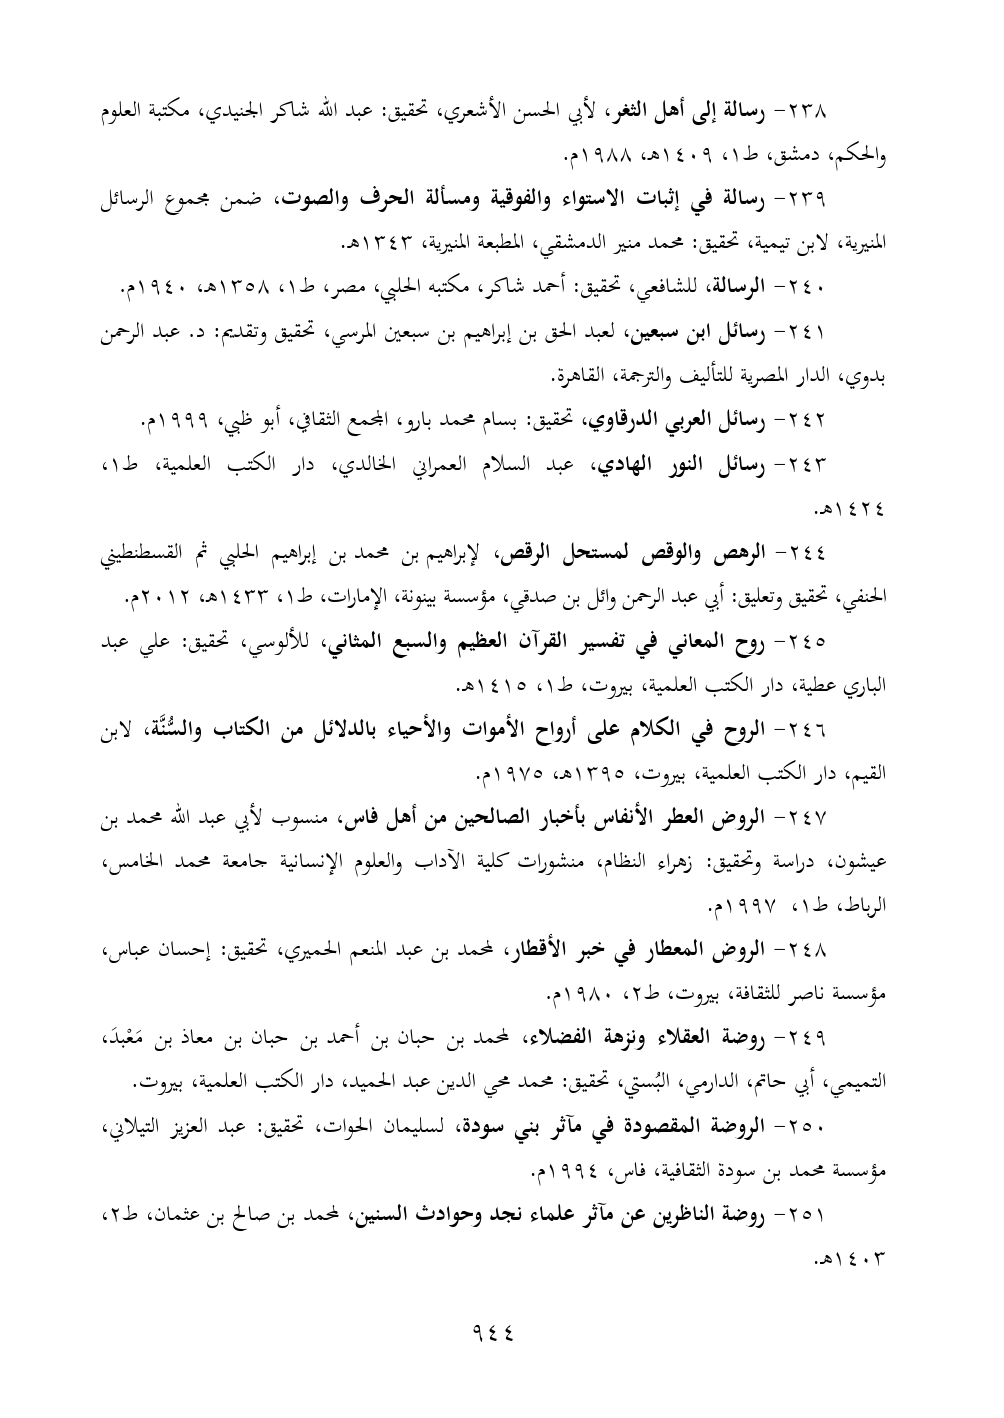 ٢٣٨- رسالة إلى أهل الثغر، لأبي الحسن الأشعري، تحقيق: عبد الله شاكر الجنيدي، مكتبة العلوم
والحكم، دمشق، ط١، ١٤٠٩هـ، ١٩٨٨م.
٢٣٩- رسالة في إثبات الاستواء والفوقية ومسألة الحرف والصوت، ضمن مجموع الرسائل
المنيرية، لابن تيمية، تحقيق: محمد منير الدمشقي، المطبعة المنيرية، ١٣٤٣هـ.
٢٤٠- الرسالة، للشافعي، تحقيق: أحمد شاكر، مكتبه الحلبي، مصر، ط١، ١٣٥٨هـ، ١٩٤٠م.
٢٤١- رسائل ابن سبعين، لعبد الحق بن إبراهيم بن سبعين المرسي، تحقيق وتقديم: د. عبد الرحمن
بدوي، الدار المصرية للتأليف والترجمة، القاهرة.
٢٤٢- رسائل العربي الدرقاوي، تحقيق: بسام محمد بارو، المجمع الثقافي، أبو ظبي، ١٩٩٩م.
٢٤٣- رسائل النور الهادي، عبد السلام العمراني الخالدي، دار الكتب العلمية، ط١،
١٤٢٤هـ.
٢٤٤- الرهص والوقص لمستحل الرقص، لإبراهيم بن محمد بن إبراهيم الحلبي ثم القسطنطيني
الحنفي، تحقيق وتعليق: أبي عبد الرحمن وائل بن صدقي، مؤسسة بينونة، الإمارات، ط١، ١٤٣٣هـ، ٢٠١٢م.
٢٤٥- روح المعاني في تفسير القرآن العظيم والسبع المثاني، للألوسي، تحقيق: علي عبد
الباري عطية، دار الكتب العلمية، بيروت، ط١، ١٤١٥هـ.
٢٤٦- الروح في الكلام على أرواح الأموات والأحياء بالدلائل من الكتاب والسُّنَّة، لابن
القيم، دار الكتب العلمية، بيروت، ١٣٩٥هـ، ١٩٧٥م.
٢٤٧- الروض العطر الأنفاس بأخبار الصالحين من أهل فاس، منسوب لأبي عبد الله محمد بن
عيشون، دراسة وتحقيق: زهراء النظام، منشورات كلية الآداب والعلوم الإنسانية جامعة محمد الخامس،
الرباط، ط١، ١٩٩٧م.
٢٤٨- الروض المعطار في خبر الأقطار، لمحمد بن عبد المنعم الحميري، تحقيق: إحسان عباس،
مؤسسة ناصر للثقافة، بيروت، ط٢، ١٩٨٠م.
٢٤٩- روضة العقلاء ونزهة الفضلاء، لمحمد بن حبان بن أحمد بن حبان بن معاذ بن مَعْبدَ،
التميمي، أبي حاتم، الدارمي، البُستي، تحقيق: محمد محي الدين عبد الحميد، دار الكتب العلمية، بيروت.
٢٥٠- الروضة المقصودة في مآثر بني سودة، لسليمان الحوات، تحقيق: عبد العزيز التيلاني،
مؤسسة محمد بن سودة الثقافية، فاس، ١٩٩٤م.
٢٥١- روضة الناظرين عن مآثر علماء نجد وحوادث السنين، لمحمد بن صالح بن عثمان، ط٢،
١٤٠٣هـ.
٩٤٤